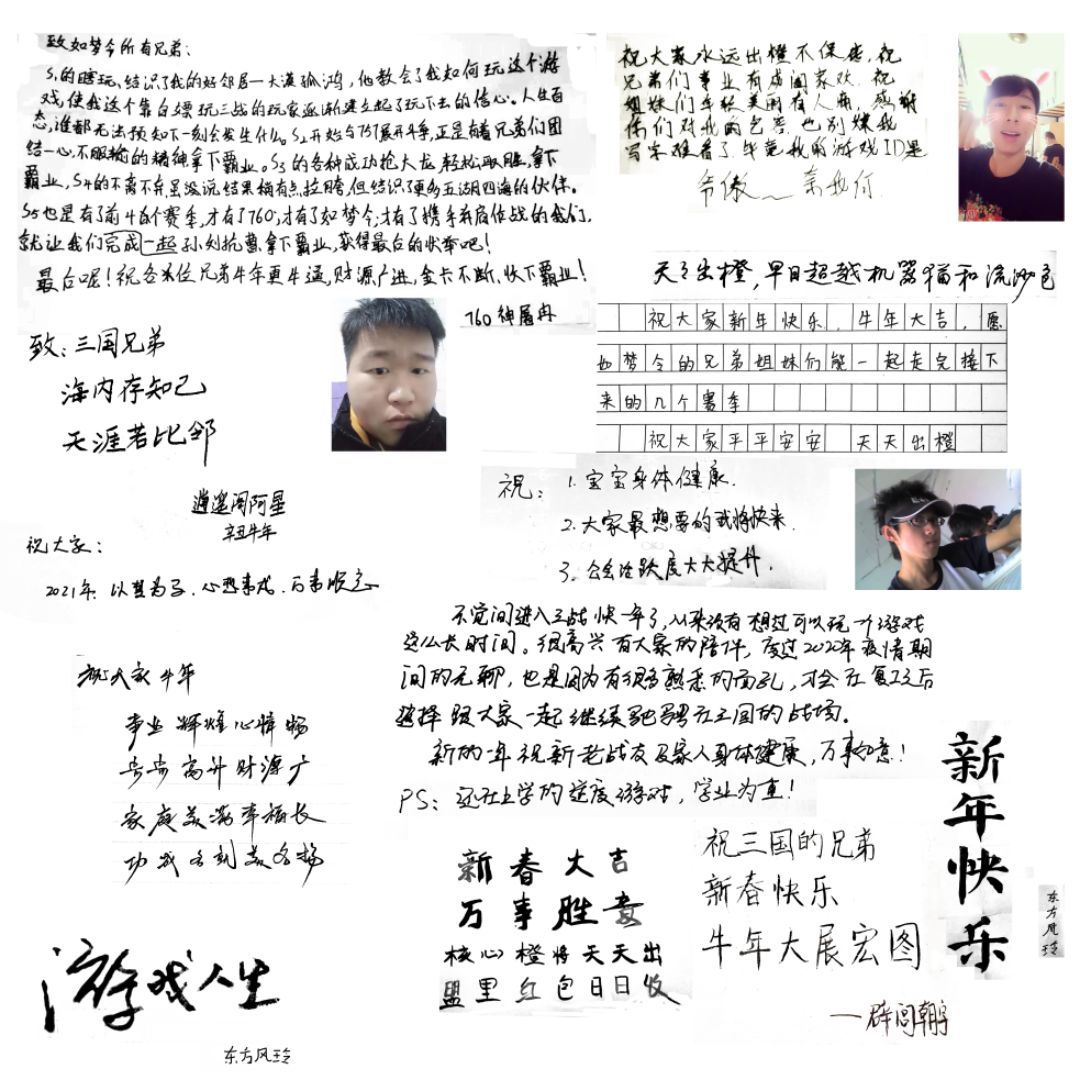 致如梦令所有兄弟:
S1的瞎玩、结识了我的好邻居一大漠孤鸿,他教会了我如何玩这个游
戏,使我这个靠白嫖玩三战的玩家逐渐建立起了玩下去的信心。人生百
态,谁都无法预知下一刻会发生什么。S2开始与757展开斗争,正是有着兄弟们团
结一心,不服输的精神拿下霸业。S3的各种成功抢大龙轻松取胜,拿下
霸业,S4的不离不弃虽没说,结果稍有点拉胯,但结识了更多五湖四海的伙伴。
S5也是有了前4个赛季,才有了760,才有了如梦令,才有了携手并肩征战的我们,
就让我们完成一起孙刘抗曹,拿下霸业,获得最后的快幸吧!
最后呢!祝各位兄弟牛年更牛逼,财源广进,金卡不断,快下霸业!
760神屠冉
祝大家永远出橙不保底,祝
兄弟们事业有成阖家欢,祝
姐妹们年轻美丽有人商,感谢
你们对我的包容,也别嫌我
写字难看了,毕竟我的游戏ID是
爷傲__奈我何
天天出橙,早日超越机器猫和流沙包
祝大家新年快乐,牛年大吉,愿
如梦令的兄弟姐妹们能一起走完接下
来的几个赛季
祝大家平平安安 天天出橙
致:三国兄弟
海内存知己
天涯若比邻
逍遥阁阿星
辛丑牛年
祝:1.宝宝身体健康.
2.大家最想要的武将快来.
3.会会活跃度大大提升.
祝大家:
2021年.以梦为马.心想事成.万事顺意
不觉间进入三战快一年了,从来没有想过可以玩一个游戏
这么长时间。很高兴有大家的陪伴,度过2020年疫情期
间的无聊,也是因为有很多熟悉的面孔,才会在复工之后
选择跟大家一起继续驰骋在三国的战场。
新的一年祝新老战友及家人身体健康,万事如意!
PS:还在上学的适度游戏,学业为重!
祝大家牛年
事业辉煌心情畅
步步高升财源广
家庭美满幸福长
功成名就美名扬
新春大吉
万事胜意
核心橙将天天出
盟里红包日日收
祝三国的兄弟
新春快乐
牛年大展宏图
新年快乐
东方风玲
游戏人生
东方风玲